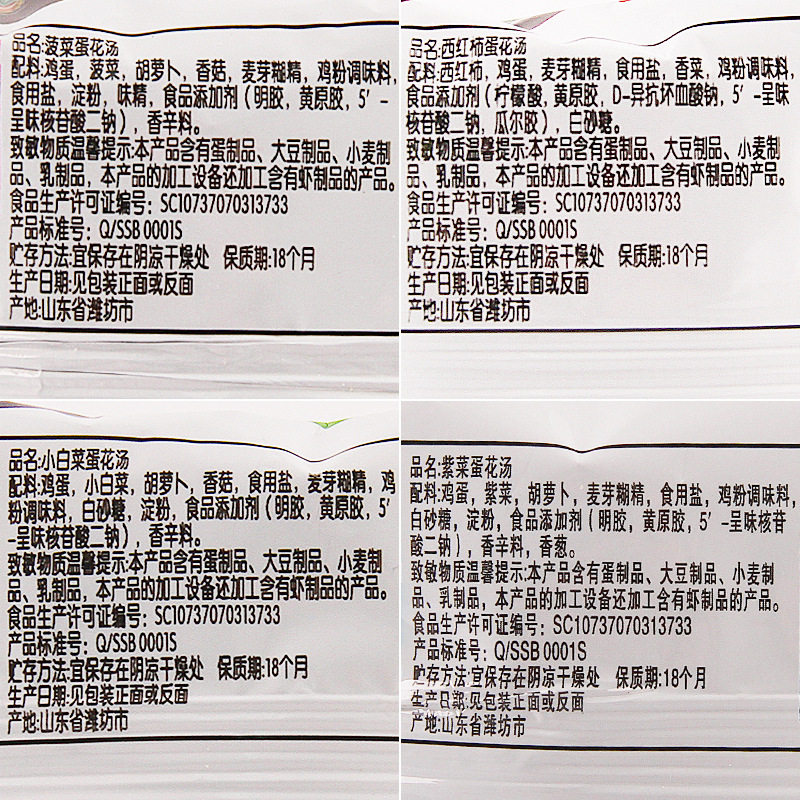 品名:菠菜蛋花汤
配料:鸡蛋，菠菜，胡萝卜，香菇，麦芽糊精，鸡粉调味料，
食用盐，淀粉，味精，食品添加剂（明胶，黄原胶，5′-
呈味核苷酸二钠），香辛料。
致敏物质温馨提示:本产品含有蛋制品、大豆制品、小麦制
品、乳制品，本产品的加工设备还加工含有虾制品的产品。
食品生产许可证编号：SC10737070313733
产品标准号：Q/SSB 0001S
贮存方法:宜保存在阴凉干燥处 保质期:18个月
生产日期:见包装正面或反面
产地:山东省潍坊市
品名:西红柿蛋花汤
配料:西红柿，鸡蛋，麦芽糊精，食用盐，香菜，鸡粉调味料，
食品添加剂（柠檬酸，黄原胶，D-异抗坏血酸钠，5′-呈味
核苷酸二钠，瓜尔胶），白砂糖。
致敏物质温馨提示:本产品含有蛋制品、大豆制品、小麦制
品、乳制品，本产品的加工设备还加工含有虾制品的产品。
食品生产许可证编号：SC10737070313733
产品标准号：Q/SSB 0001S
贮存方法:宜保存在阴凉干燥处 保质期:18个月
生产日期:见包装正面或反面
产地:山东省潍坊市
品名:小白菜蛋花汤
配料:鸡蛋，小白菜，胡萝卜，香菇，食用盐，麦芽糊精，鸡
粉调味料，白砂糖，淀粉，食品添加剂（明胶，黄原胶，5′
-呈味核苷酸二钠），香辛料。
致敏物质温馨提示:本产品含有蛋制品、大豆制品、小麦制
品、乳制品，本产品的加工设备还加工含有虾制品的产品。
食品生产许可证编号：SC10737070313733
产品标准号：Q/SSB 0001S
贮存方法:宜保存在阴凉干燥处 保质期:18个月
生产日期:见包装正面或反面
产地:山东省潍坊市
品名:紫菜蛋花汤
配料:鸡蛋，紫菜，胡萝卜，麦芽糊精，食用盐，鸡粉调味料，
白砂糖，淀粉，食品添加剂（明胶，黄原胶，5′-呈味核苷
酸二钠），香辛料，香葱。
致敏物质温馨提示:本产品含有蛋制品、大豆制品、小麦制
品、乳制品，本产品的加工设备还加工含有虾制品的产品。
食品生产许可证编号：SC10737070313733
产品标准号：Q/SSB 0001S
贮存方法:宜保存在阴凉干燥处 保质期:18个月
生产日期:见包装正面或反面
产地:山东省潍坊市